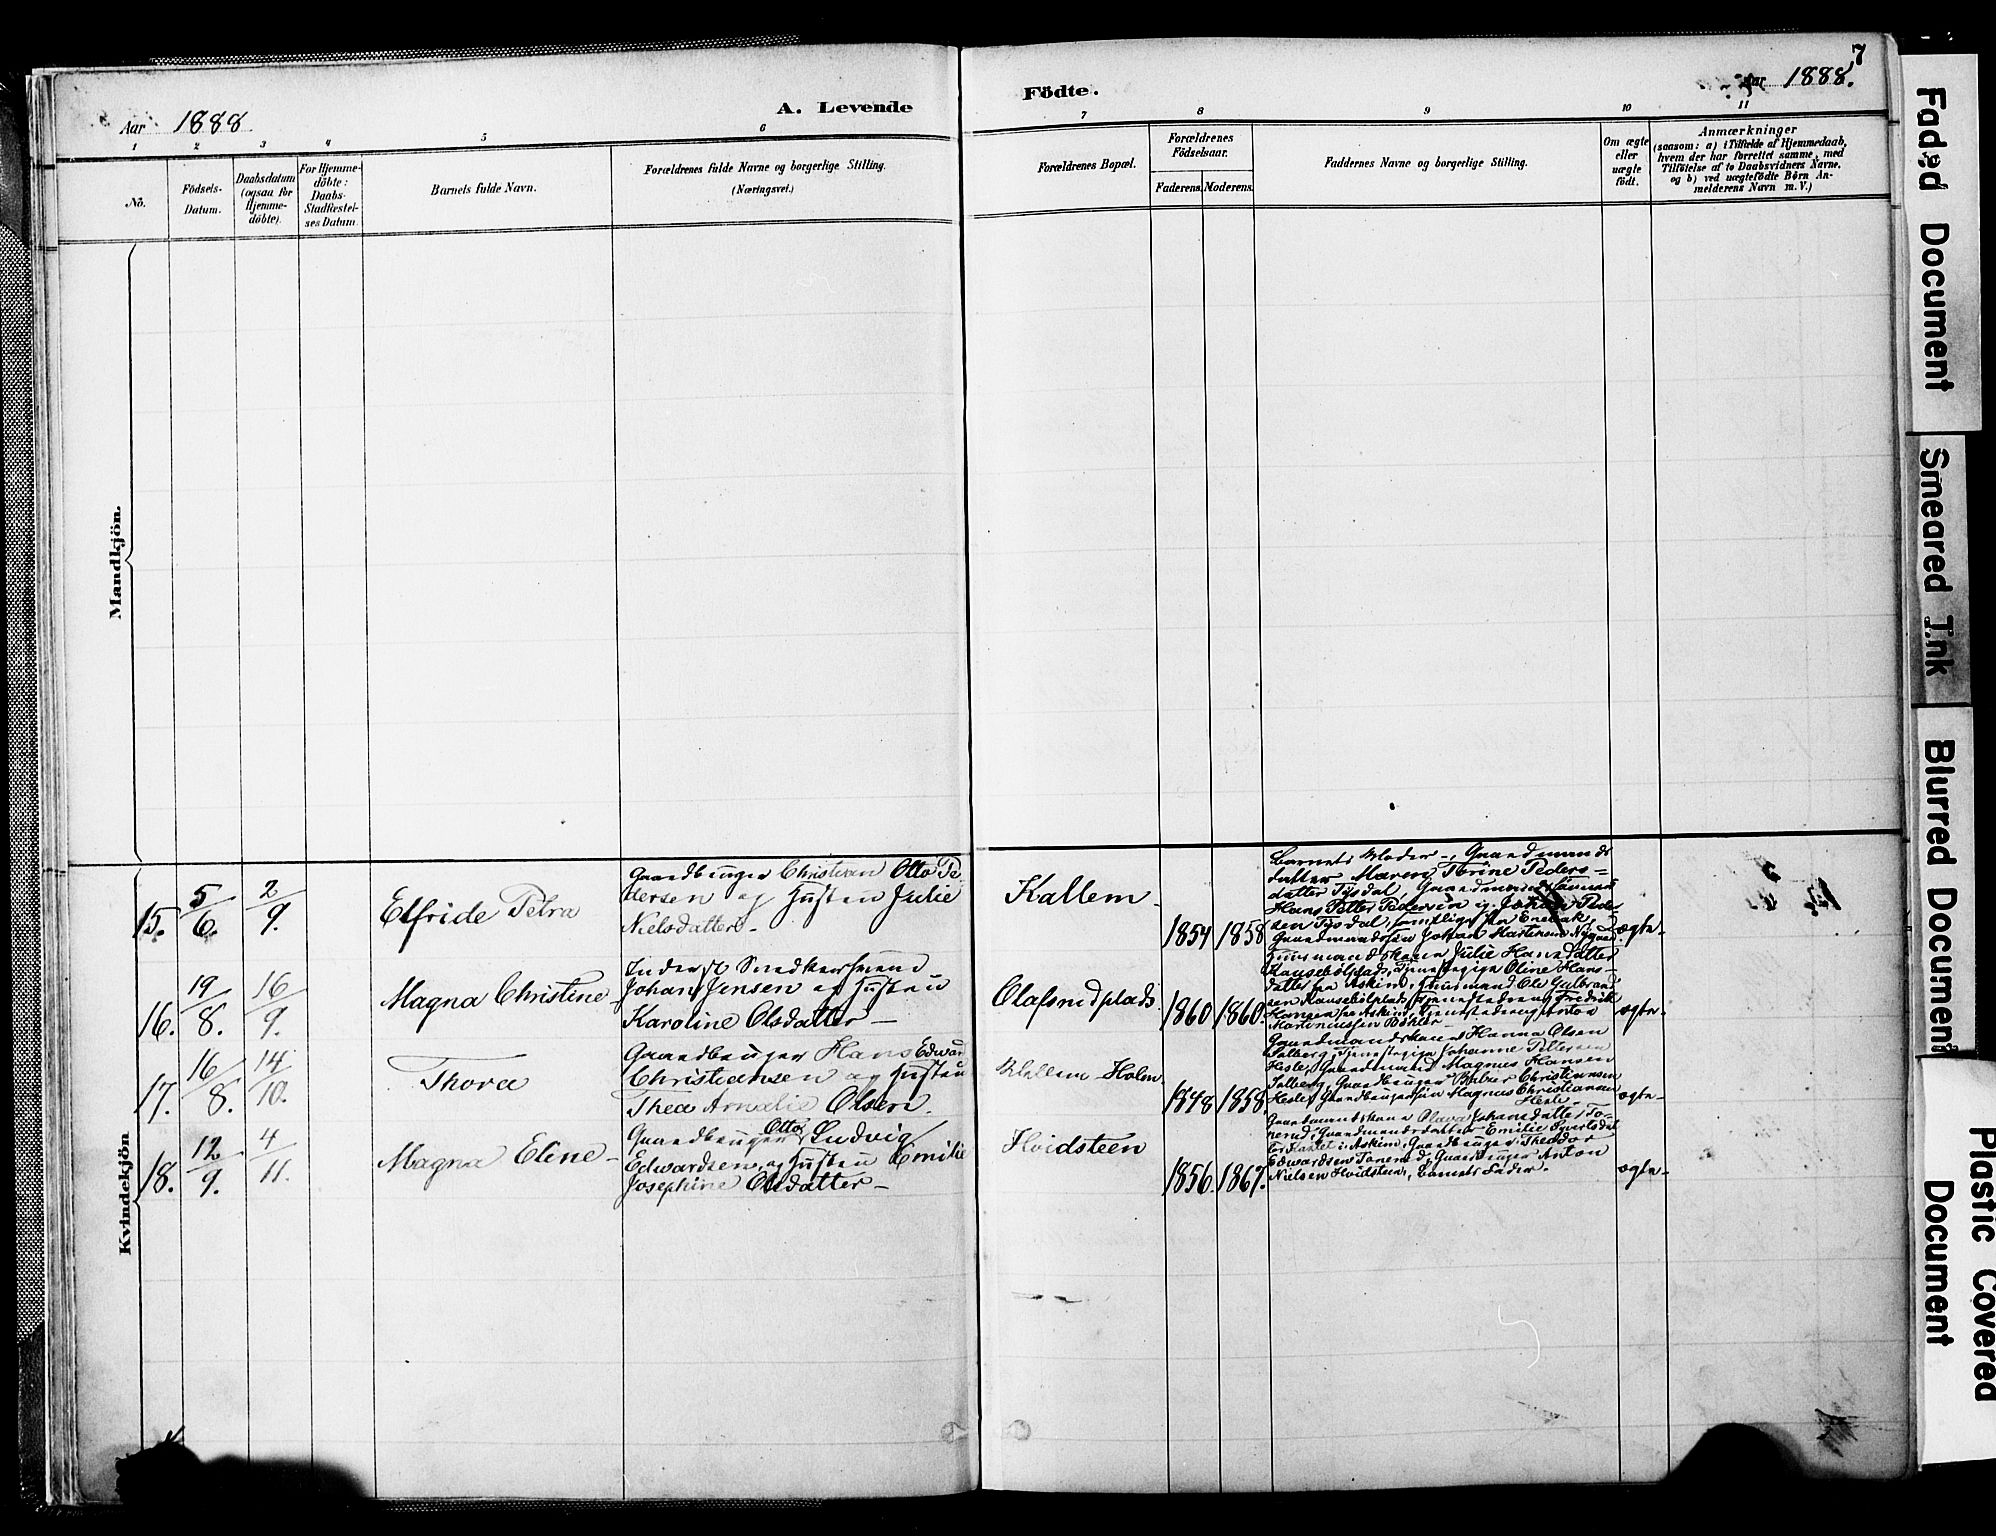 7
Aar 1888.
A. Levende
Födte.
Aar 1888.
1 2 3 4 5 6 7 8 9 10 11
No.
Födsels-
Datum.
Daabsdatum
(ogsaa for
Hjemme-
döbte).
For Hjemme-
döbte:
Daabs-
Stadfæstel-
ses Datum.
Barnets fulde Navn.
Forældrenes fulde Navne og borgerlige Stilling.
(Næringsvei.)
Forældrenes Bopæl.
Forældrenes
Födselsaar.
Faderens.
Moderens.
Faddernes Navne og borgerlige Stilling.
Om ægte
eller
uægte
födt.
Anmærkninger
(saasom: a) i Tilfælde af Hjemmedaab,
hvem der har forrettet samme, med
Tilföielse af to Daabsvidners Navne.
og b) ved uægtefödte Börn An-
melderens Navn m. V.)
Mandkjön.
Kvindekjön
15. 5/6. 2/9. Elfride Petra
Gaardbruger Christian Otto Pe-
dersen og Hustru Julie
Nielsdatter.
Kallem
1854 1858
Barnets Moder, Gaardmands
datter Maren Torine Peders-
datter Tysdal, Gaardmandssønnerne
Hans Petter Pedersen og Johan Peder-
sen Tysdal, samtlige fra Enebak,
Gaardmandssøn Johan Martinsen Nygaard.
ægte-
16. 19/8. 16/9. Magna Christine
Inderst Snedkersvend
Johan Jensen og Hustru
Karoline Olsdatter -
Olafsrudplads
1860 1860.
Huusmandskone Julie Hansdatter
Tjenestepige Oline Hans-
datter fra Askim, Huusmand Ole Gulbrand-
sen Tjenestedreng Fredrik
Hansen fra Askim, Tjenestedreng Anton
Martiniussen
ægte-
17. 16/8. 14/10. Thora
Gaardbruger Hans Edward
Christiansen og Hustru
Thea Amalie Olsen.
Kallem Holm
1848 1858.
Gaardmandskone Hanna Olsen
Solberg, Tjenestepige Johanne Pettersen
Hesle, Gaardmand Magnus Hansen
Solberg, Gaardbruger Christiansen
Hesle, Gaardbrugersøn Magnus Christiansen
Hesle -
ægte-
18. 12/9. 4/11. Magna Eline -
Gaardbruger Otto Ludvig
Edwardsen og Hustru Emilie
Josephine Olsdatter -
Hvidsteen
1856. 1867.
Gaardmandskone Olava Johansdatter To-
nerud, Gaardmandsdatter Emilie
i Askim, Gaardbruger Theodor
Edwardsen Tonerud, Gaardbruger Anton
Nielsen Hvidsteen, Barnets Fader.
ægte-
Faded Document
Smeared Ink
Blurred Document
Plastic Covered
Document